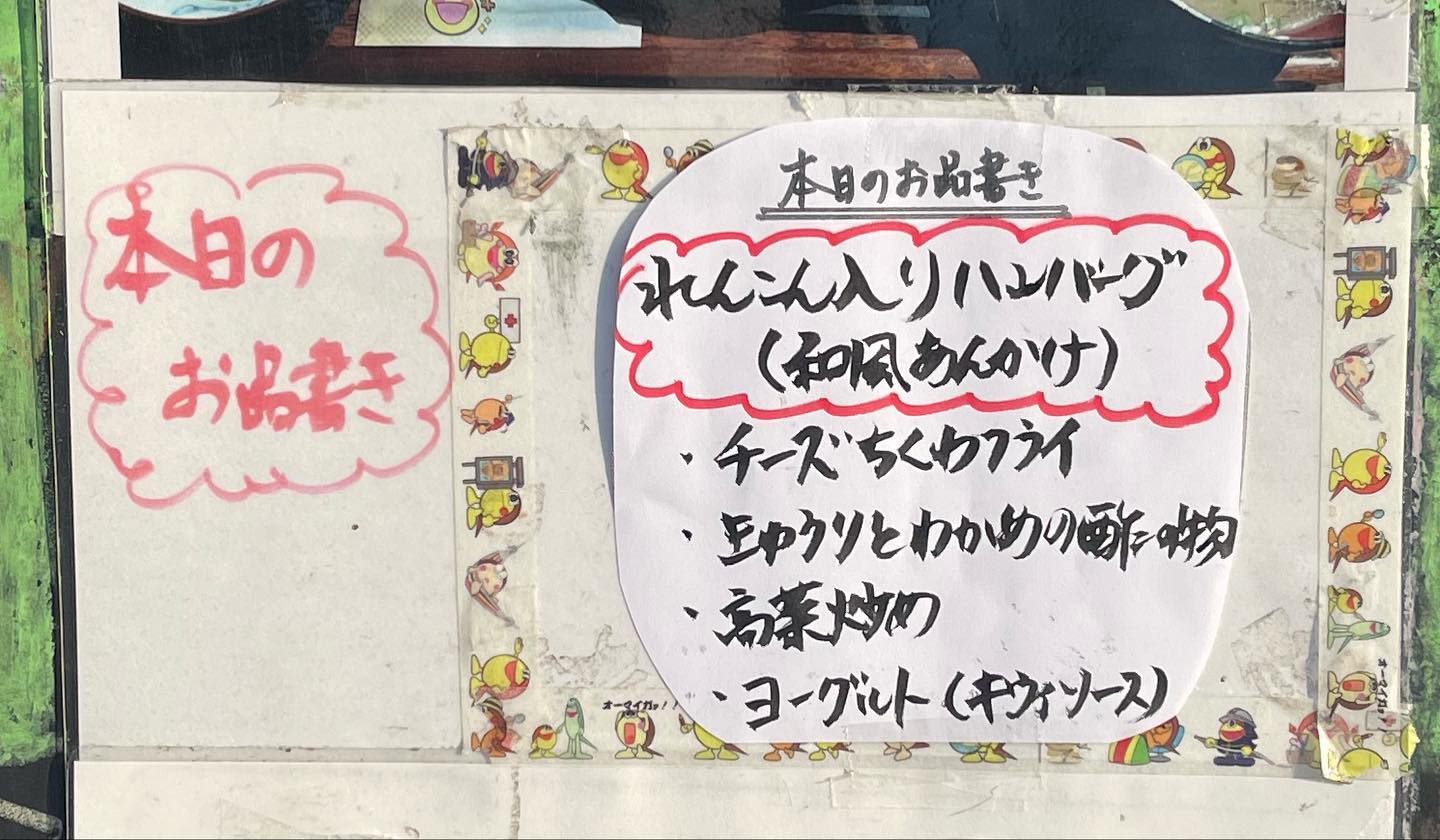 本日の
お品書き
本日のお品書き
れんこん入りハンバーグ
(和風あんかけ)
・チーズちくわフライ
・きゅうりとわかめの酢の物
・高菜炒め
・ヨーグルト(キウィソース)
オーマイガッ!!
オーマイガッ!!